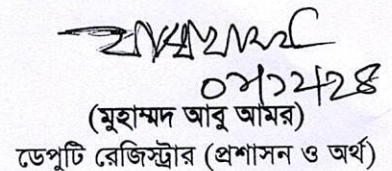 (মুহাম্মদ আবু আমর)
ডেপুটি রেজিস্ট্রার (প্রশাসন ও অর্থ)